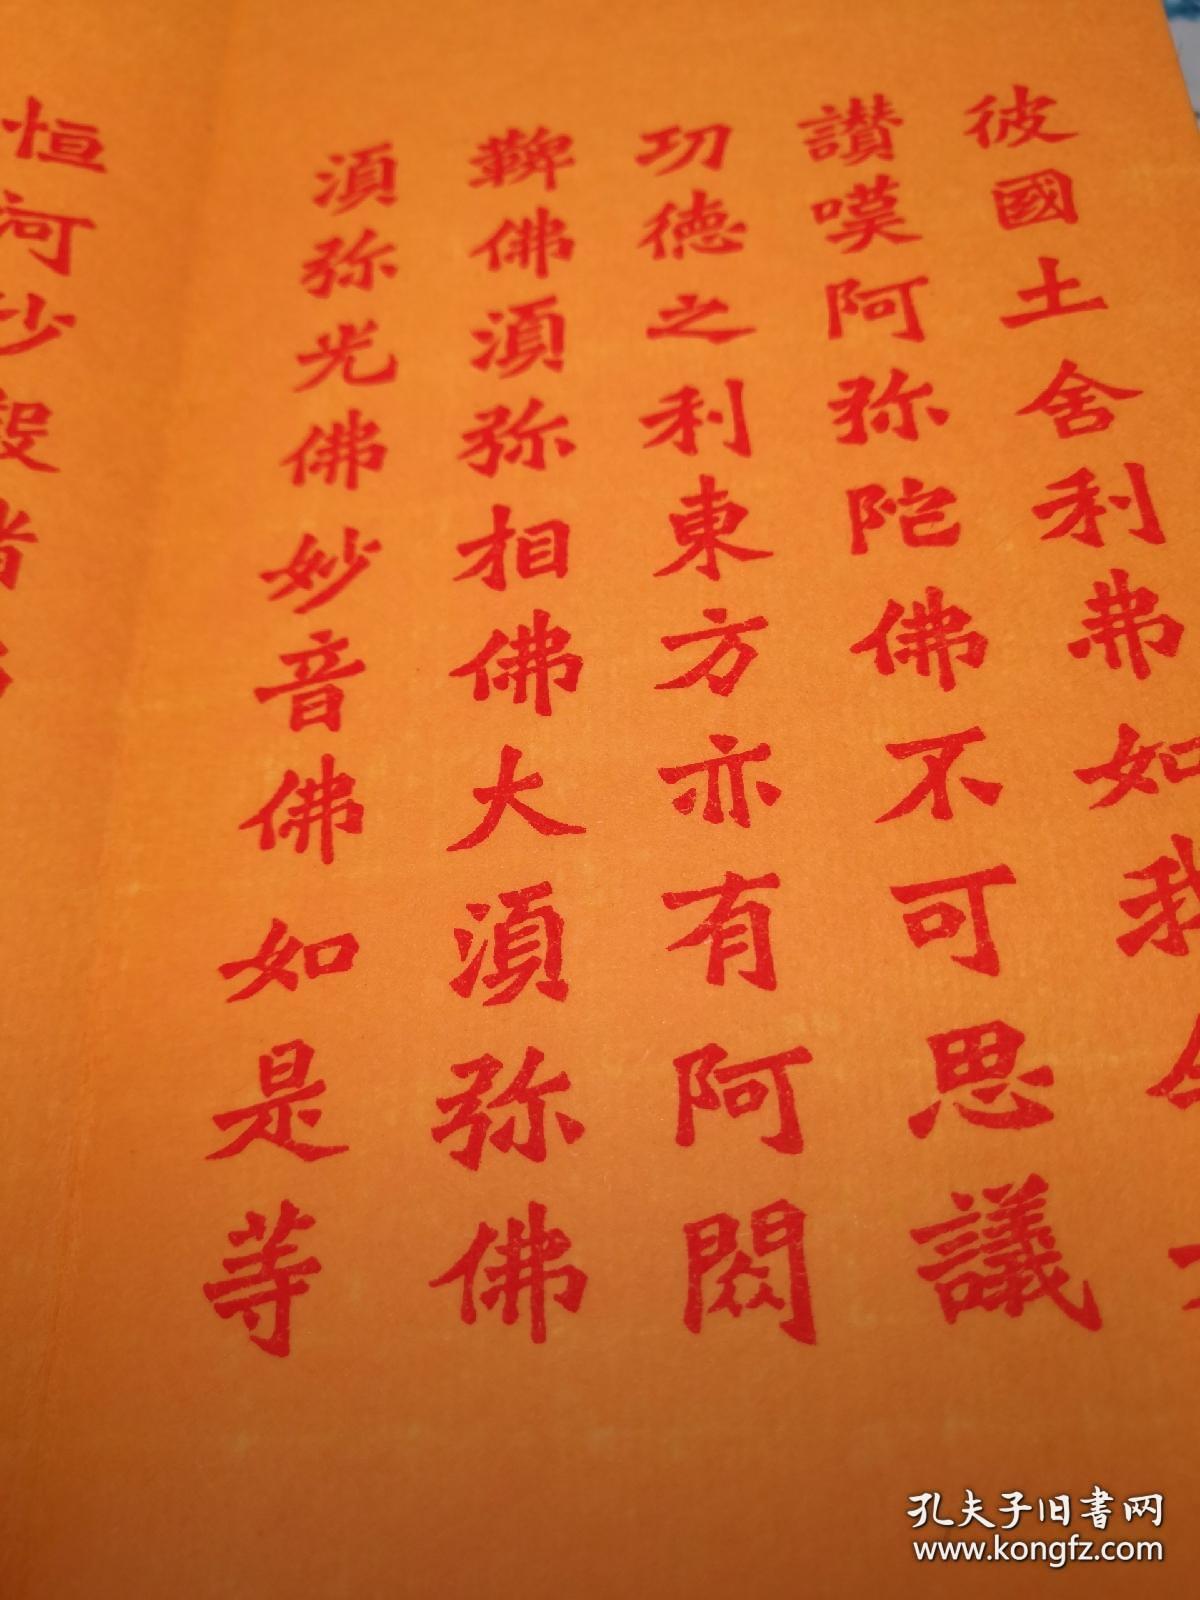 彼國土舍利弗如我今
讃嘆阿弥陀佛不可思議
功德之利東方亦有阿閦
鞞佛湏弥相佛大湏弥佛
湏弥光佛妙音佛如是等
恒河沙
孔夫子旧書网
www.kongfz.com